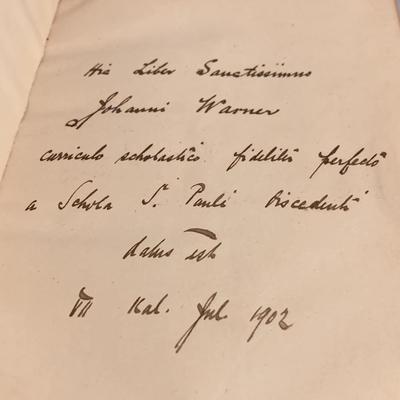 Hic Liber Sanctissimus
Johanni Warner
curriculo scholastico fideliter perfecto
a Schola S. Pauli discedenti
datus est
VII Kal. Jul. 1902